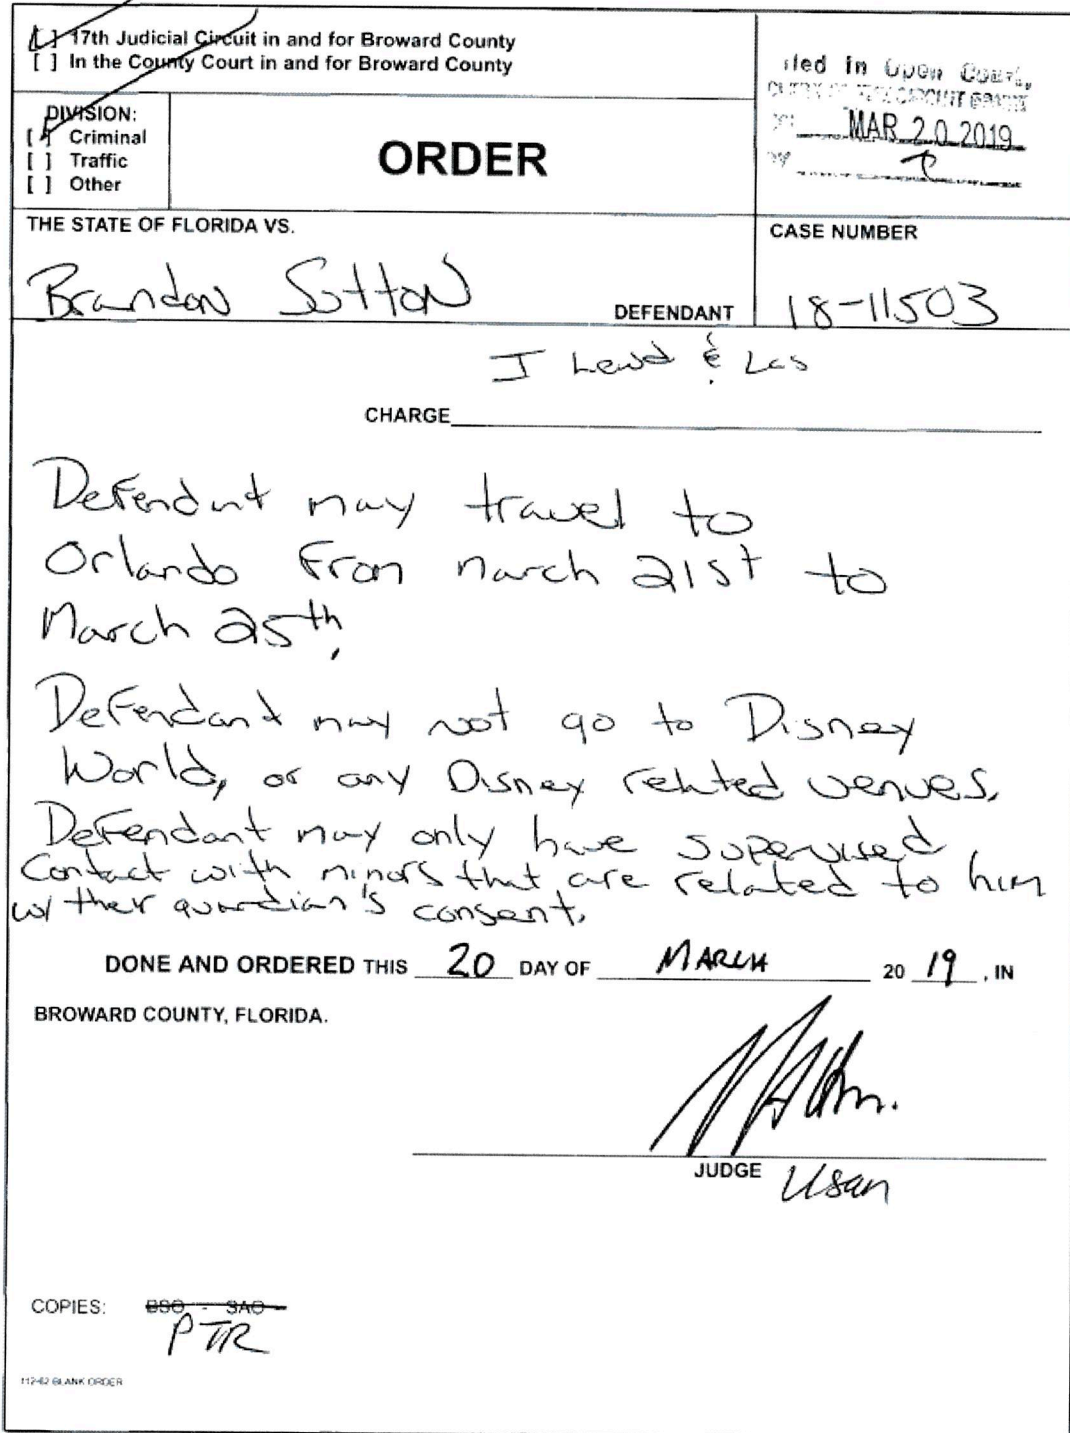 [✓] 17th Judicial Circuit in and for Broward County
[ ] In the County Court in and for Broward County
DIVISION:
[✓] Criminal
[ ] Traffic
[ ] Other
ORDER
iled in Open Court,
CLERK OF THE CIRCUIT COURT
MAR 20 2019
THE STATE OF FLORIDA VS.
Brandon Sutton
DEFENDANT
CASE NUMBER
18-11503
I Lewd & Las
CHARGE
Defendnt may travel to
Orlando From March 21st to
March 25th.
Defendant may not go to Disney
World, or any Disney related venues.
Defendant may only have supervised
Contact with minors that are related to him
w/ their guardian's consent.
DONE AND ORDERED THIS 20 DAY OF MARCH 20 19, IN
BROWARD COUNTY, FLORIDA.
JUDGE Usan
COPIES: BSO - SAO
PTR
112-62 BLANK ORDER